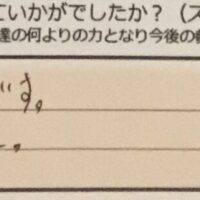 ていかがでしたか？（ス
達の何よりの力となり今後の
です。